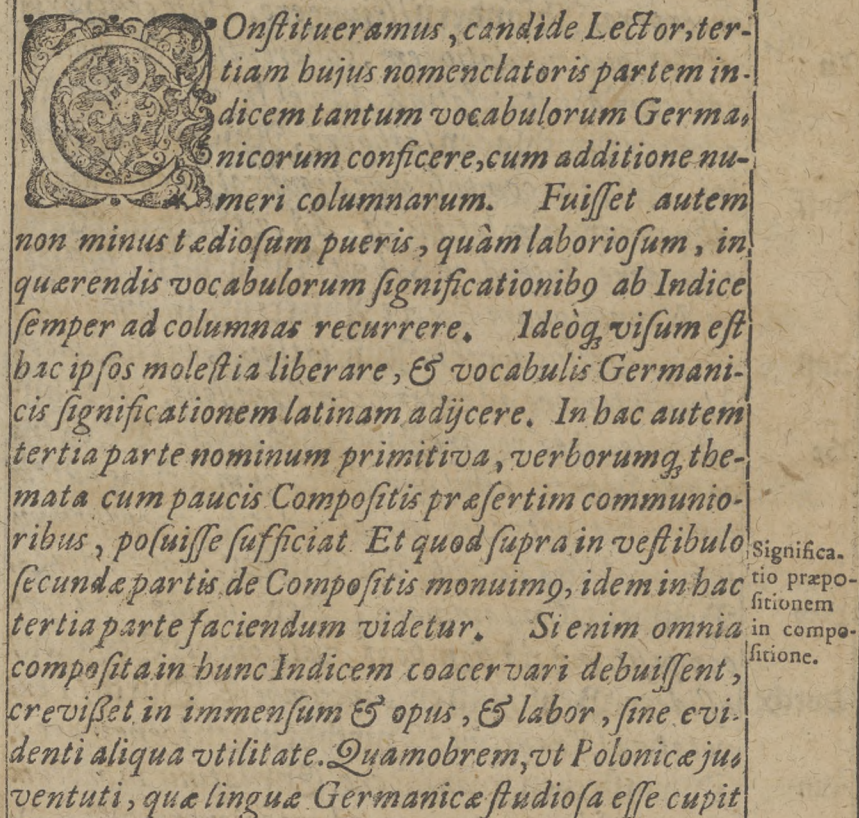 COnſtitueramus, candide Lector, ter-
tiam hujus nomenclatoris partem in-
dicem tantum vocabulorum Germa-
nicorum conficere, cum additione nu-
meri columnarum. Fuiſſet autem
non minus tædioſum pueris, quàm laborioſum, in
quærendis vocabulorum ſignificationibꝰ ab Indice
ſemper ad columnas recurrere. Ideòqꝫ viſum eſt
hac ipſos moleſtia liberare, & vocabulis Germani-
cis ſignificationem latinam adijcere. In hac autem
tertia parte nominum primitiva, verborumqꝫ the-
mata cum paucis Compoſitis præſertim communio-
ribus, poſuiſſe ſufficiat. Et quod ſupra in veſtibulo
ſecundæ partis de Compoſitis monuimꝰ, idem in hac
tertia parte faciendum videtur. Si enim omnia
compoſita in hunc Indicem coacervari debuiſſent,
creviſzet in immenſum & opus, & labor, ſine evi-
denti aliqua vtilitate. Quamobrem, vt Polonicæ ju-
ventuti, quæ linguæ Germanicæ ſtudioſa eſſe cupit
Significa-
tio præpo-
ſitionem
in compo-
ſitione.